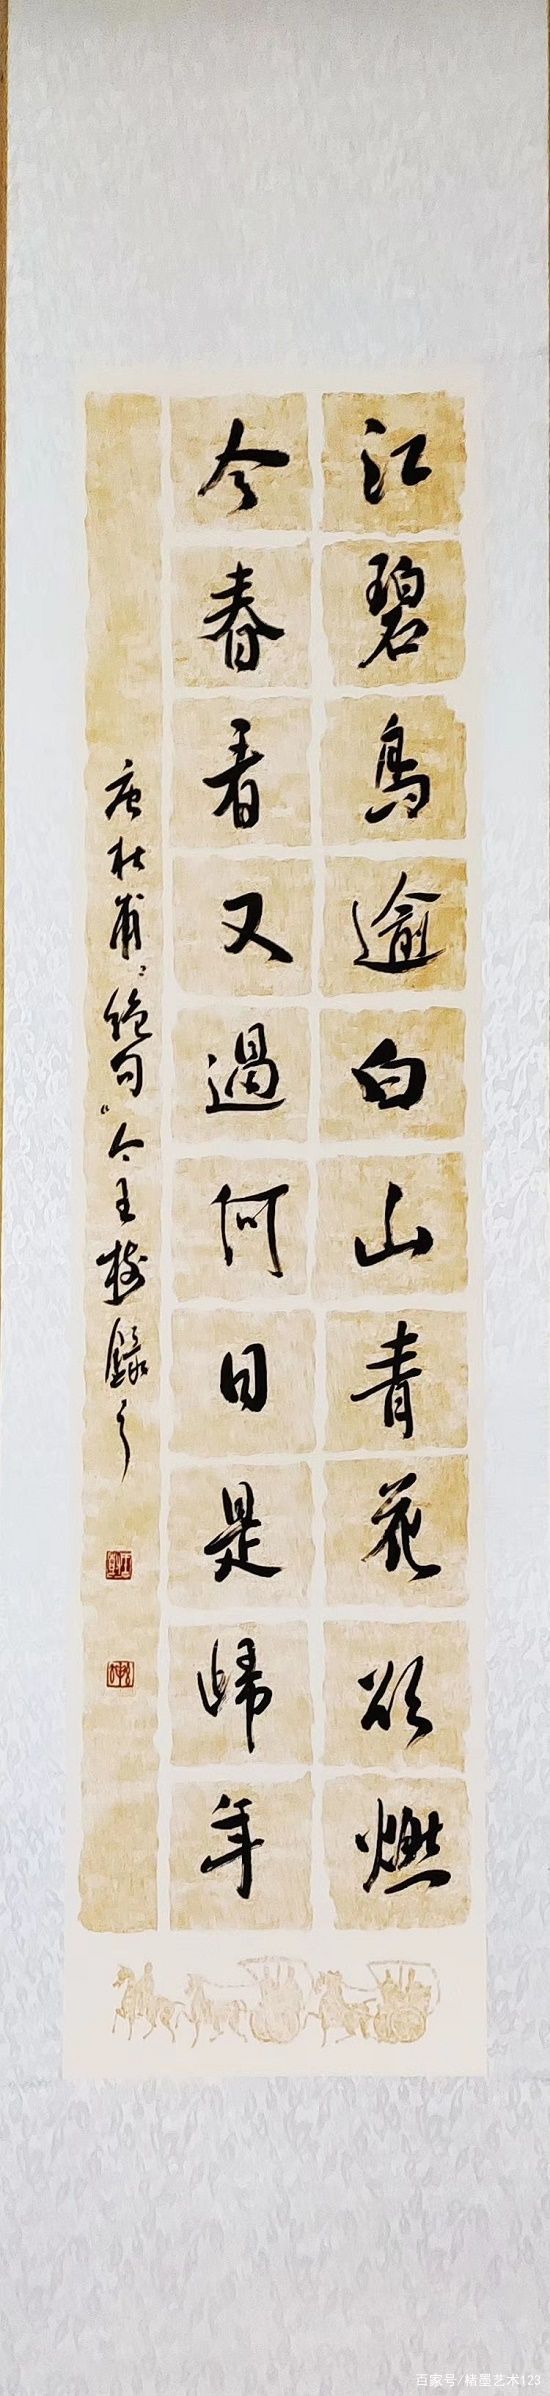 江碧鳥逾白山青花欲燃
今春看又過何日是歸年
唐杜甫"绝句"今王樹錄之
百家号/楮墨艺术123